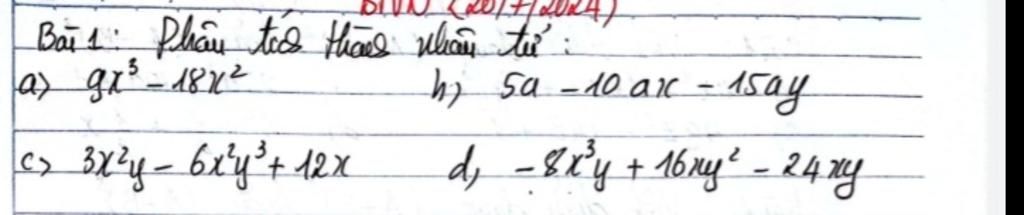 BTVN (20/7/2024)
Bài 1: Phân tích thành nhân tử:
a) 9x³ - 18x² b) 5a - 10ax - 15ay
c) 3x²y - 6x²y³ + 12x d, -8x³y + 16xy² - 24xy